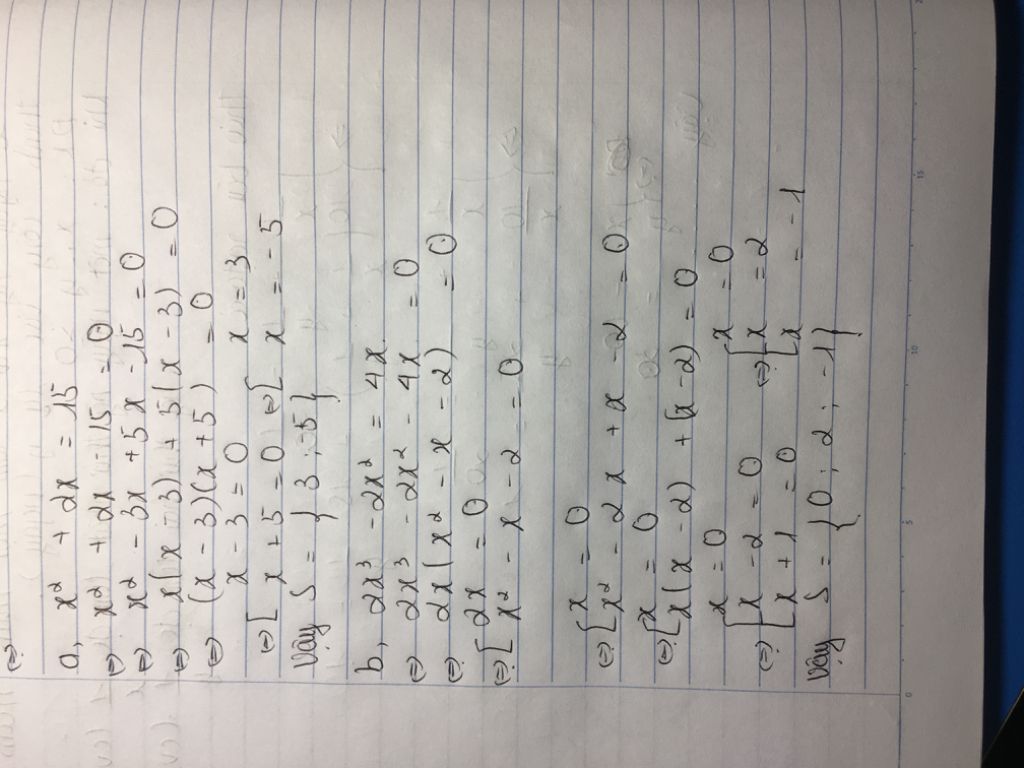 ⇔
a, x² + 2x = 15
⇔ x² + 2x - 15 = 0
⇔ x² - 3x + 5x - 15 = 0
⇔ x(x - 3) + 5(x - 3) = 0
⇔ (x - 3)(x + 5) = 0
x - 3 = 0 x = 3
⇔ [ x + 5 = 0 ⇔ [ x = - 5
Vậy S = { 3 ; -5 }
b, 2x³ - 2x² = 4x
⇔ 2x³ - 2x² - 4x = 0
⇔ 2x(x² - x - 2) = 0
2x = 0
⇔ [ x² - x - 2 = 0
x = 0
⇔ [ x² - 2x + x - 2 = 0
x = 0
⇔ [ x(x - 2) + (x - 2) = 0
x = 0 x = 0
⇔ [ x - 2 = 0 ⇔ [ x = 2
[ x + 1 = 0 [ x = - 1
Vậy S = { 0 ; 2 ; - 1 }